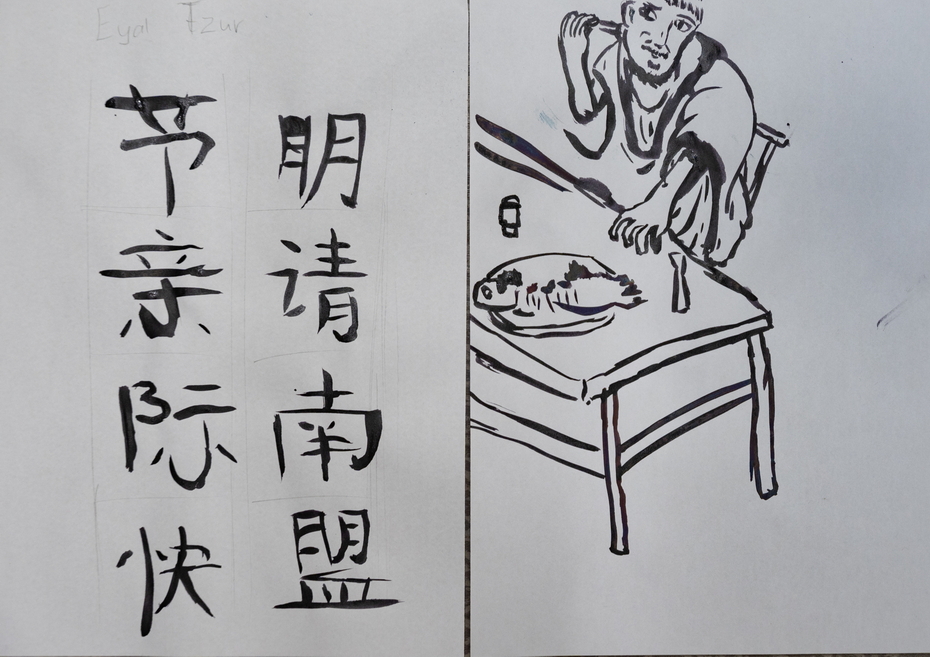 Eyal Tzur
明请南盟
节亲际快